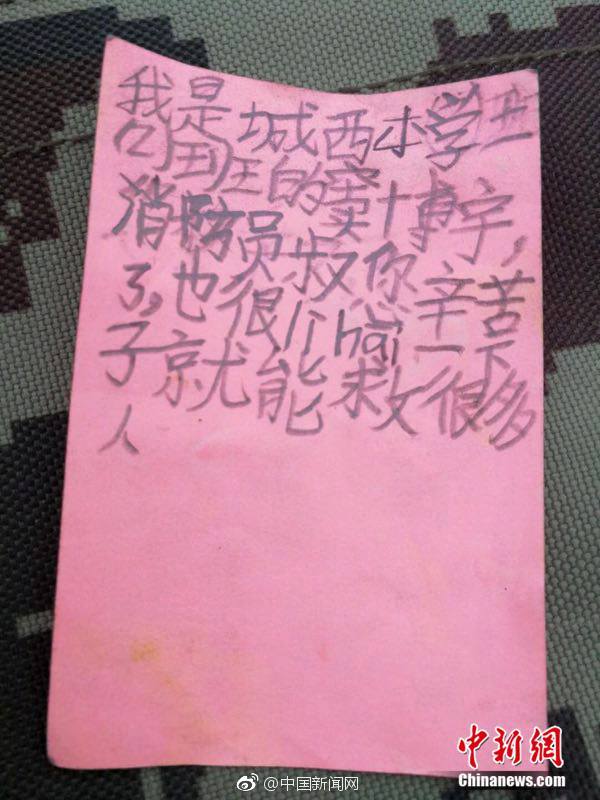 我是城西小学
班的窦博宇,
消防员叔你辛苦
了,也很li hai 一下
子就能救很多
人
@中国新闻网
中新網
Chinanews.com